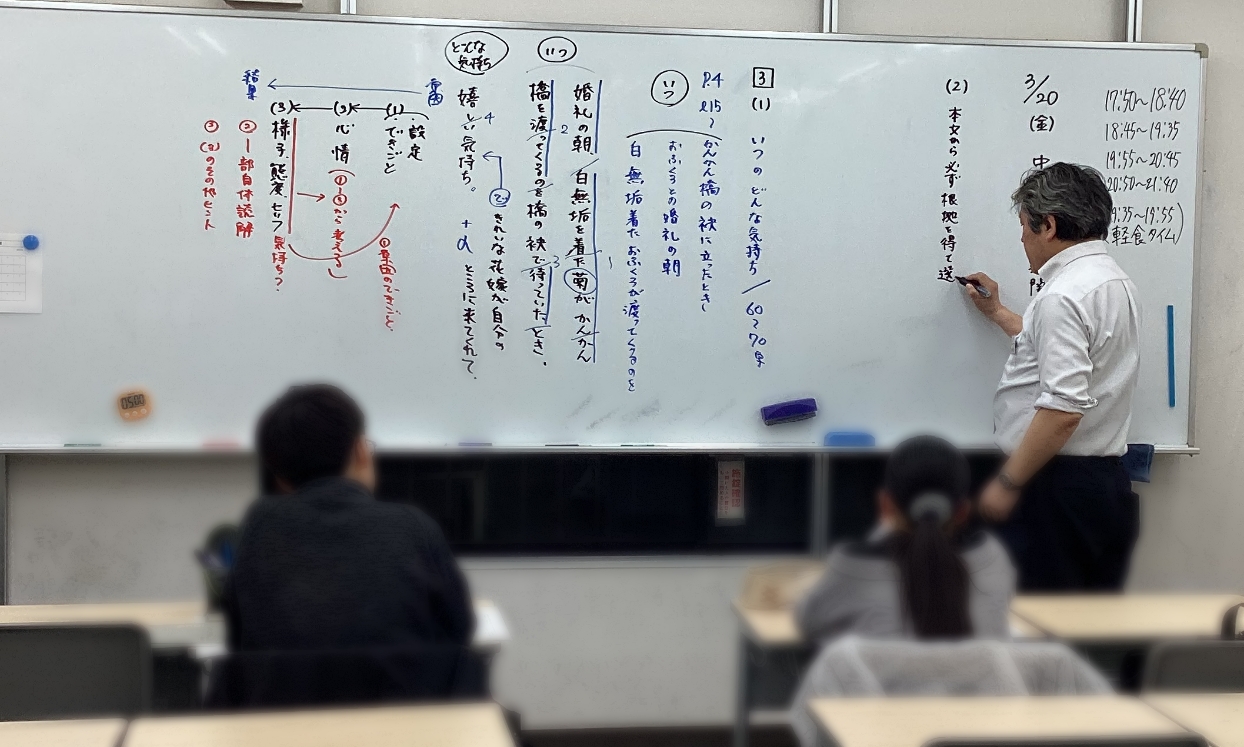 17:50〜18:40
18:45〜19:35
19:55〜20:45
20:50〜21:40
19:35〜19:55)
軽食タイム)
3/20
(金)
(2)
本文から必ず根拠を得て送
3
(1)
いつのどんな気持ち/60〜70字
P.4
l15〜
かんかん橋の袂に立ったとき
おふくろとの婚礼の朝
白無垢着たおふくろが渡ってくるのを
いつ
いつ
婚礼の朝、白無垢を着た菊がかんかん
橋を渡ってくるのを橋の袂で待っていたとき、
1
2
3
4
どんな
気持ち
嬉しい気持ち。
きれいな花嫁が自分の
+α ところに来てくれて、
原因
結果
(1)
設定
できごと
(2)
心情
(①〜③から考える)
(3)
様子、態度、セリフ
気持ち?
①原因のできごと、
②一部自体読解
③(3)のその他ヒント
05:00